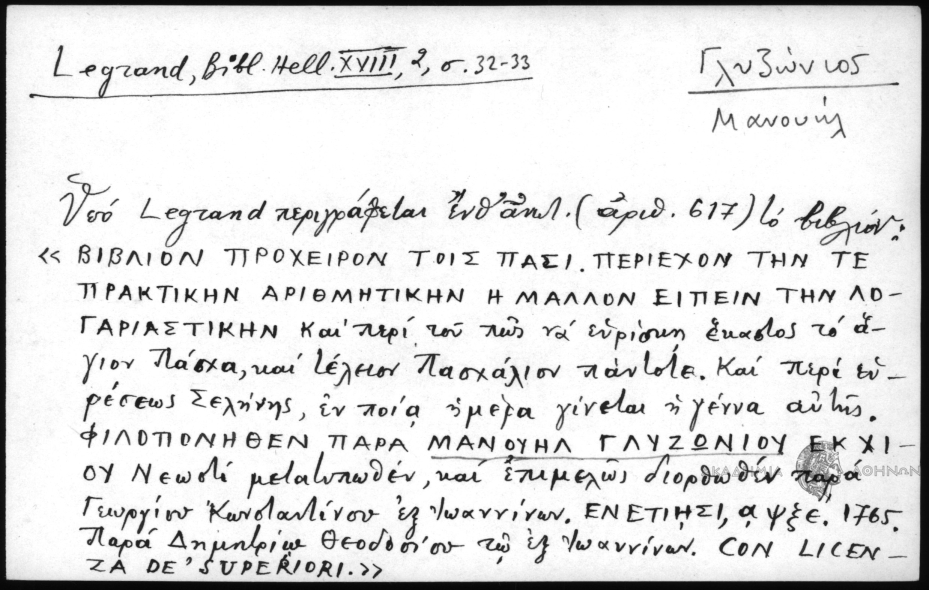 Legrand, Bibl. Hell. XVIII, 2, σ. 32-33
Γλυζώνιος
Μανουήλ
Ὑπό Legrand περιγράφεται ἐνθ' ἀνωτ. (ἀριθ. 617) τό βιβλίον:
« ΒΙΒΛΙΟΝ ΠΡΟΧΕΙΡΟΝ ΤΟΙΣ ΠΑΣΙ. ΠΕΡΙΕΧΟΝ ΤΗΝ ΤΕ
ΠΡΑΚΤΙΚΗΝ ΑΡΙΘΜΗΤΙΚΗΝ Η ΜΑΛΛΟΝ ΕΙΠΕΙΝ ΤΗΝ ΛΟ-
ΓΑΡΙΑΣΤΙΚΗΝ Και περί τοῦ πῶς νά εὑρίσκη ἕκαστος τό ἅ-
γιον Πάσχα, καί τέλειον Πασχάλιον πάντοτε. Καί περί εὑ-
ρέσεως Σελήνης, ἐν ποίᾳ ἡμέρᾳ γίνεται ἡ γέννα αὐτῆς.
ΦΙΛΟΠΟΝΗΘΕΝ ΠΑΡΑ ΜΑΝΟΥΗΛ ΓΛΥΖΩΝΙΟΥ ΕΚ ΧΙ-
ΟΥ Νεωστί μετατυπωθέν, καί ἐπιμελῶς διορθωθέν παρά
Γεωργίου Κωνσταντίνου ἐξ Ἰωαννίνων. ΕΝΕΤΙΗΣΙ, αψξε. 1765.
Παρά Δημητρίῳ Θεοδοσίου τῷ ἐξ Ἰωαννίνων. CON LICEN-
ZA DE' SUPERIORI.»
ΑΚΑΔΗΜΙΑ ΑΘΗΝΩΝ